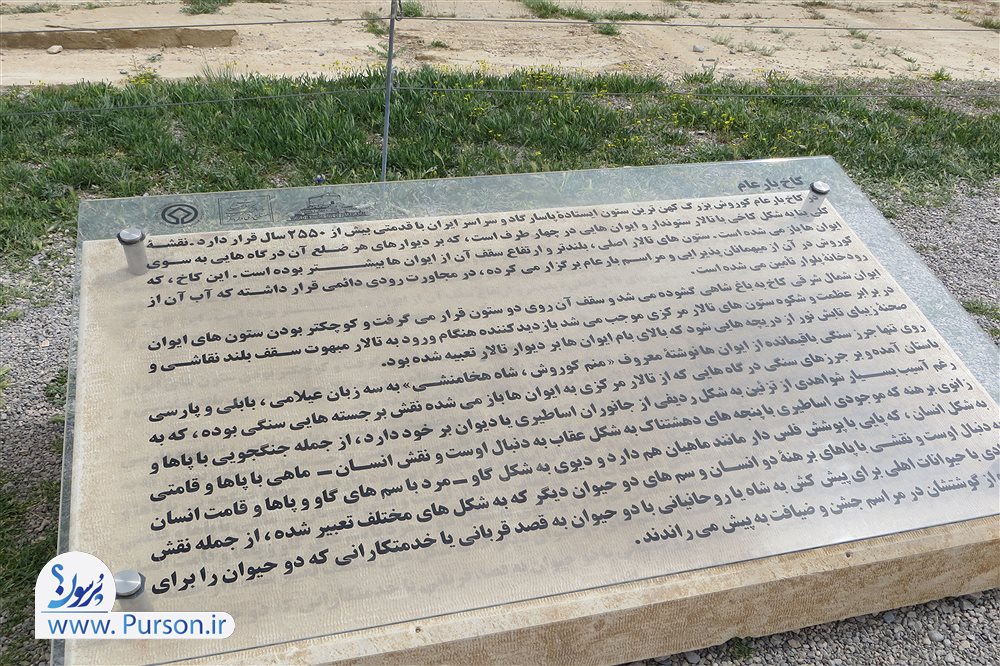 کاخ بار عام
کاخ بار عام کوروش بزرگ کهن ترین ستون ایستاده پاسارگاد و سراسر ایران با قدمتی بیش از ۲۵۵۰ سال قرار دارد. نقشه
شکل کاخی با تالار ستوندار و ایوان هایی در چهار طرف است، که بر دیوارهای هر ضلع آن درگاه هایی به سوی
ایوان ها باز می شده است. ستون های تالار اصلی، بلندتر و ارتفاع سقف آن از ایوان ها بیشتر بوده است. این کاخ، که
کوروش در آن از میهمانان پذیرایی و مراسم بار عام برگزار می کرده، در مجاورت رودی دائمی قرار داشته که آب آن از
رودخانه پلوار تأمین می شده است.
ایوان شمال شرقی کاخ به باغ شاهی گشوده می شد و سقف آن روی دو ستون قرار می گرفت و کوچکتر بودن ستون های ایوان
در برابر عظمت و شکوه ستون های تالار مرکزی موجب می شد بازدید کننده هنگام ورود به تالار مبهوت سقف بلند نقاشی و
زیبای تابش نور از دریچه هایی شود که بالای بام ایوان ها بر دیوار تالار تعبیه شده بود.
روی تنها جرز سنگی باقیمانده از ایوان ها نوشتهٔ معروف «منم کوروش، شاه هخامنشی» به سه زبان عیلامی، بابلی و پارسی
باستان آمده و بر جرزهای سنگی درگاه هایی که از تالار مرکزی به ایوان ها باز می شده نقش برجسته هایی سنگی بوده، که به
رغم آسیب بسیار شواهدی از تزئین به شکل ردیفی از جانوران اساطیری یا دیوان بر خود دارد، از جمله جنگجویی با پاها و
زانوی برهنه که موجودی اساطیری با پنجه های دهشتناک به شکل عقاب به دنبال اوست و نقش انسان ـ ماهی با پاها و قامتی
به شکل انسان، که پایی با پوشش فلس دار مانند ماهیان هم دارد و دیوی به شکل گاو ـ مرد با سم های گاو و پاها و قامت انسان
به دنبال اوست و نقشی با پاهای برهنهٔ دو انسان و سم های دو حیوان دیگر که به شکل های مختلف تعبیر شده، از جمله نقش
با حیوانات اهلی برای پیش کش به شاه یا روحانیانی با دو حیوان به قصد قربانی یا خدمتکارانی که دو حیوان را برای
از گوشتشان در مراسم جشن و ضیافت به پیش می راندند.
پُرسون؟
www.Purson.ir